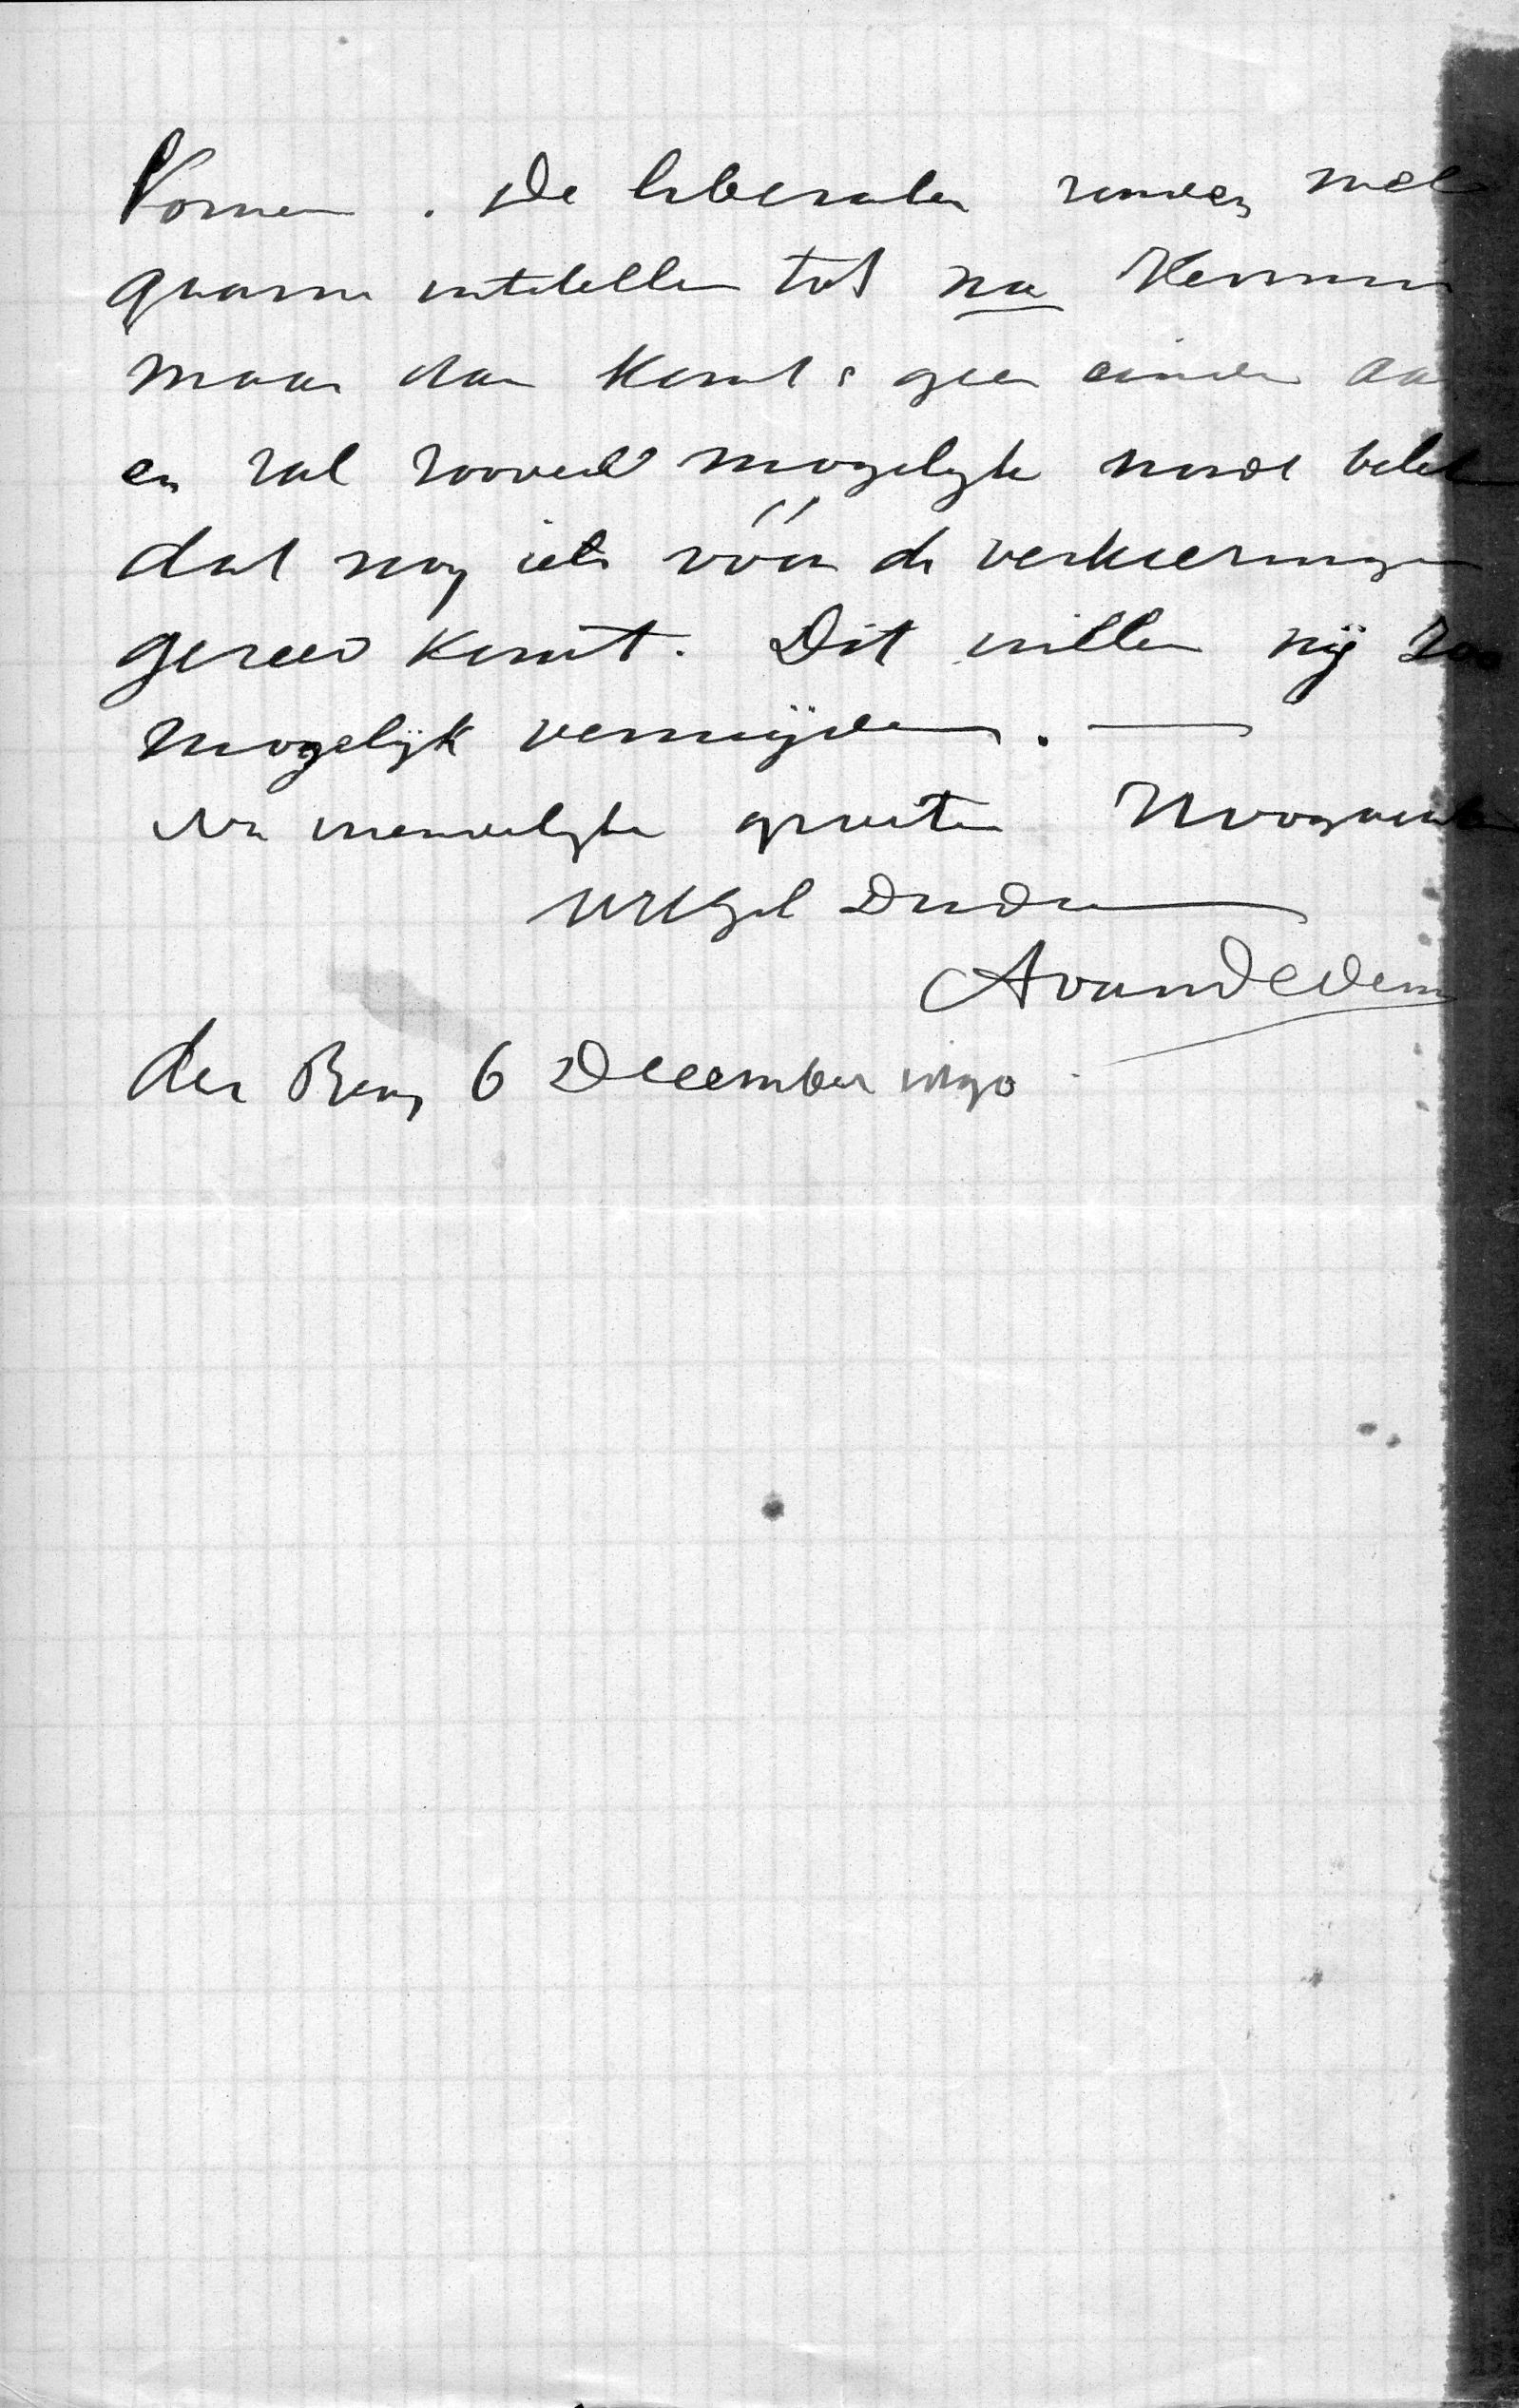 komen. De liberalen zouden het
gaarne uitstellen tot na Kersmis
maar dan komt er geen einde aan
en zal zooveel mogelijk wordt belet
dat nog iets vóór de verkiezingen
gereed komt. Dit willen wij zoo
mogelijk vermijden. —
Na vriendelijke groeten Hoogachtend
UwEgd Dnaar
AvanDedem
den Berg 6 December 1890